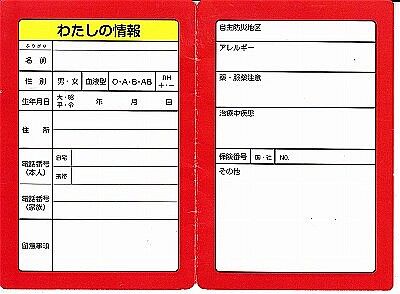 わたしの情報
ふりがな
名前
性別 男・女 血液型 O・A・B・AB RH +・-
生年月日 大・昭 平・令 年 月 日
住所
電話番号 (本人) 自宅
携帯
電話番号 (家族)
留意事項
自主防災地区
アレルギー
薬・服薬注意
治療中疾患
保険番号 国・社 NO.
その他